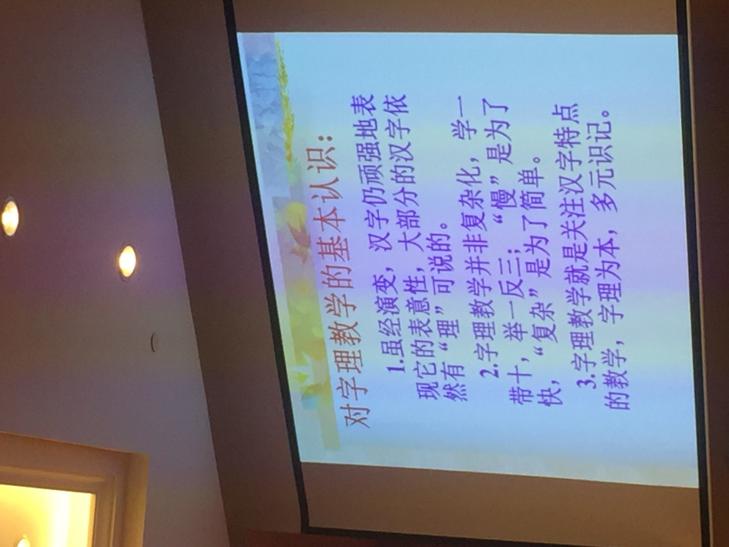 对字理教学的基本认识：
1.虽经演变，汉字仍顽强地表
现它的表意性，大部分的汉字依
然有“理”可说的。
2.字理教学并非复杂化，学一
带十，举一反三；“慢”是为了
快，“复杂”是为了简单。
3.字理教学就是关注汉字特点
的教学，字理为本，多元识记。